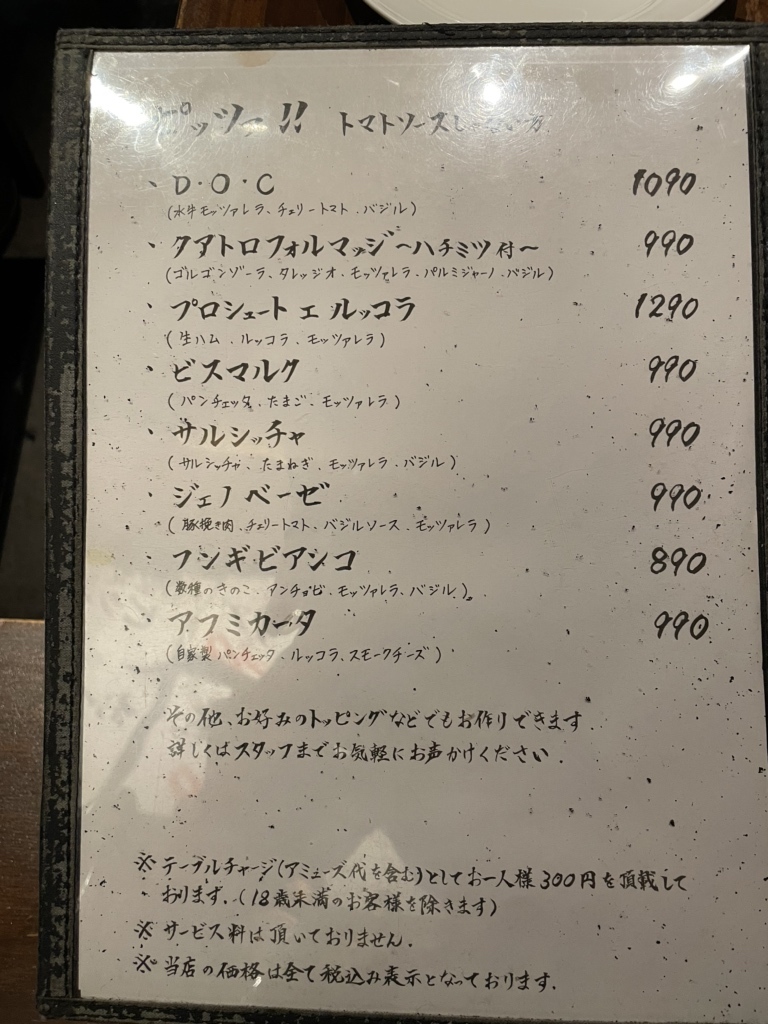 ピッツァ!! トマトソースじゃない方
・D・O・C 1090
(水牛モッツァレラ、チェリートマト、バジル)
・クアトロフォルマッジ〜ハチミツ付〜 990
(ゴルゴンゾーラ、タレッジオ、モッツァレラ、パルミジャーノ、バジル)
・プロシュート エ ルッコラ 1290
(生ハム、ルッコラ、モッツァレラ)
・ビスマルク 990
(パンチェッタ、たまご、モッツァレラ)
・サルシッチャ 990
(サルシッチャ、たまねぎ、モッツァレラ、バジル)
・ジェノベーゼ 990
(豚挽き肉、チェリートマト、バジルソース、モッツァレラ)
・フンギビアンコ 890
(数種のきのこ、アンチョビ、モッツァレラ、バジル)
・アフミカータ 990
(自家製パンチェッタ、ルッコラ、スモークチーズ)
その他、お好みのトッピングなどでもお作りできます
詳しくはスタッフまでお気軽にお声かけください.
※テーブルチャージ(アミューズ代を含む)としてお一人様300円を頂戴して
おります.(18歳未満のお客様を除きます)
※サービス料は頂いておりません.
※当店の価格は全て税込み表示となっております.